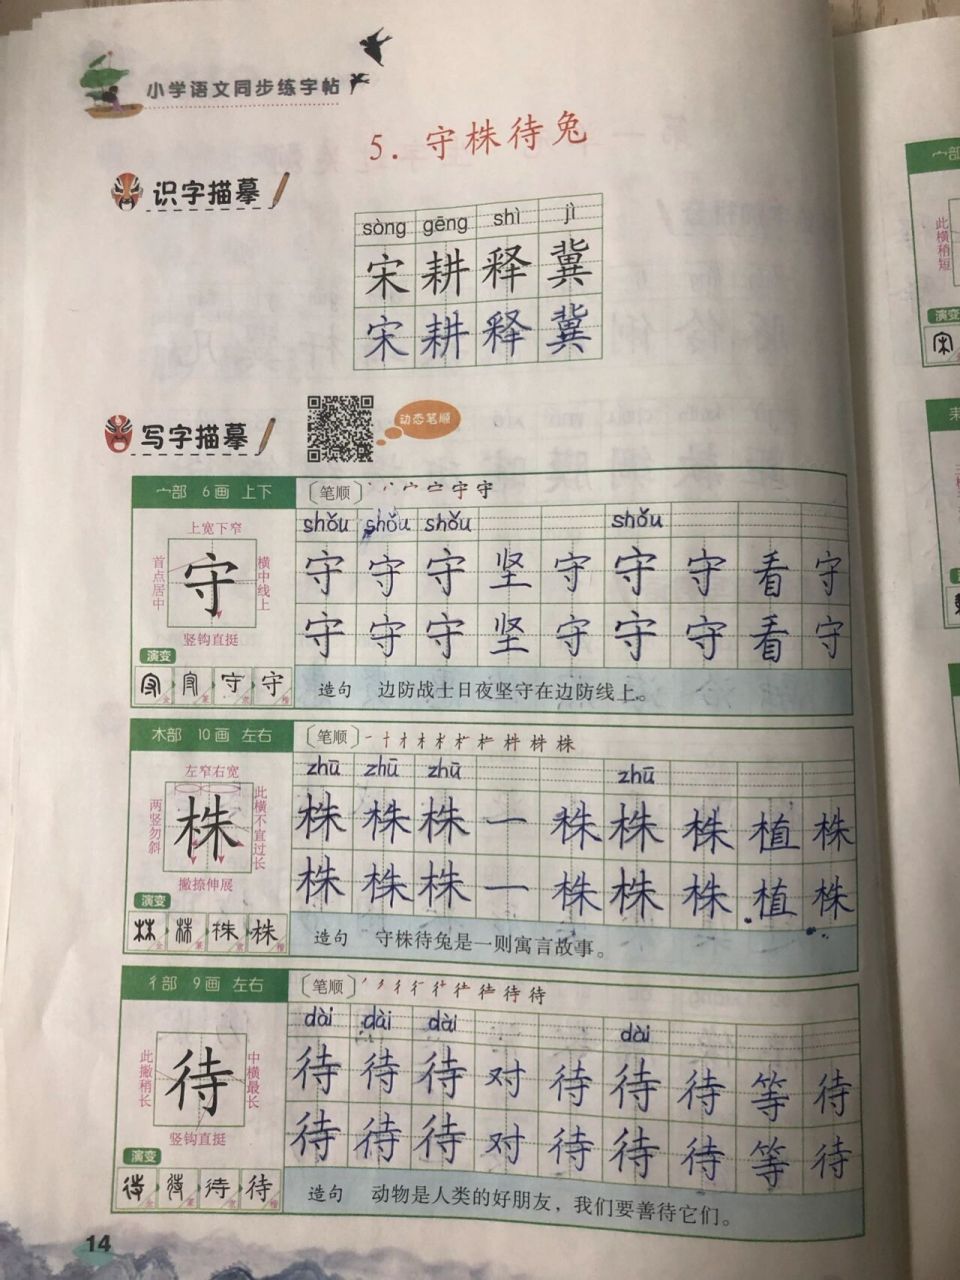 小学语文同步练字帖
5. 守株待兔
识字描摹
sòng gēng shì jì
宋 耕 释 冀
宋 耕 释 冀
写字描摹
动态笔顺
宀部 6画 上下
上宽下窄
首点居中
守
横中线上
竖钩直挺
演变
守
〔笔顺〕
shǒu shǒu shǒu shǒu
守 守 守 坚 守 守 守 看 守
守 守 守 坚 守 守 守 看 守
造句 边防战士日夜坚守在边防线上。
木部 10画 左右
左窄右宽
两竖勿斜
株
此横不宜过长
撇捺伸展
演变
株
〔笔顺〕
zhū zhū zhū zhū
株 株 株 一 株 株 株 植 株
株 株 株 一 株 株 株 植 株
造句 守株待兔是一则寓言故事。
彳部 9画 左右
此撇稍长
待
中横最长
竖钩直挺
演变
待
〔笔顺〕
dài dài dài dài
待 待 待 对 待 待 待 等 待
待 待 待 对 待 待 待 等 待
造句 动物是人类的好朋友，我们要善待它们。
14
此横稍短
演变